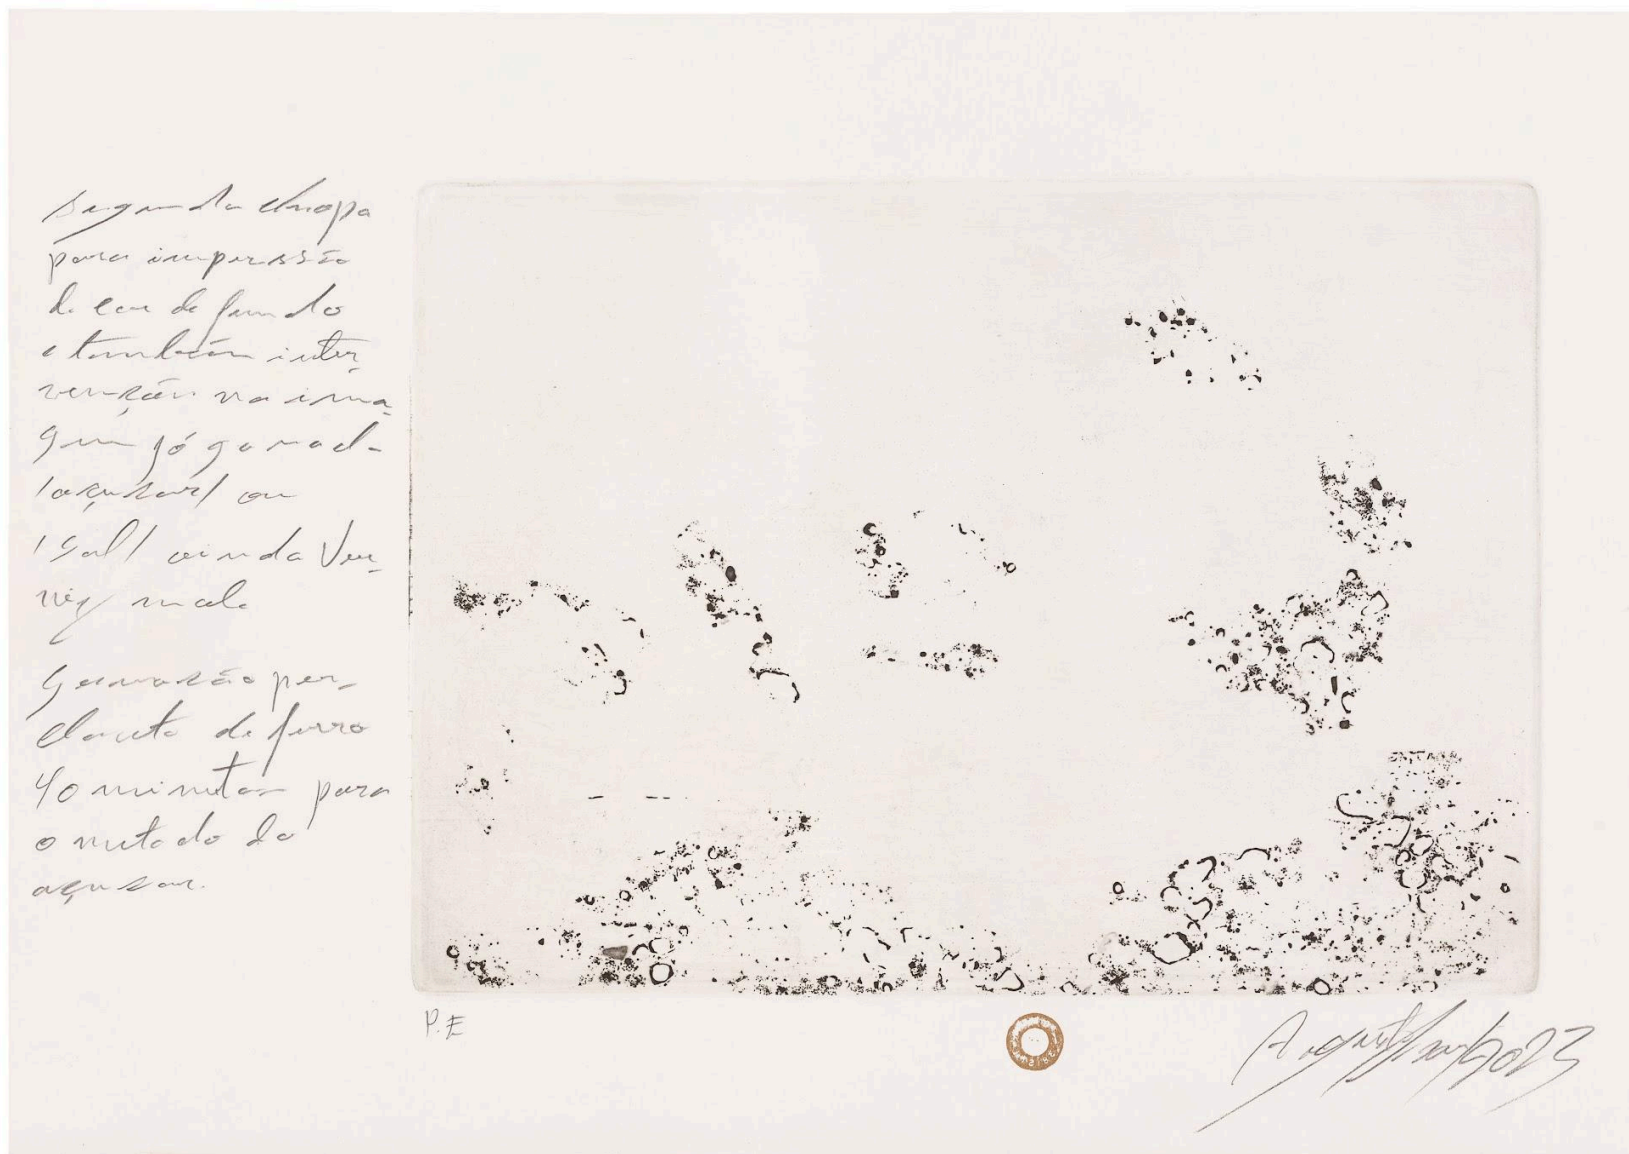 segunda chapa
para impressão
de cor de fundo
e também inter-
venção na ima-
gem já gravad-
/açucar/ ou
/sal/ ainda Ver-
niz mole
Gravação per-
cloreto de ferro
40 minutos para
o metodo do
açucar.
P.E
2023